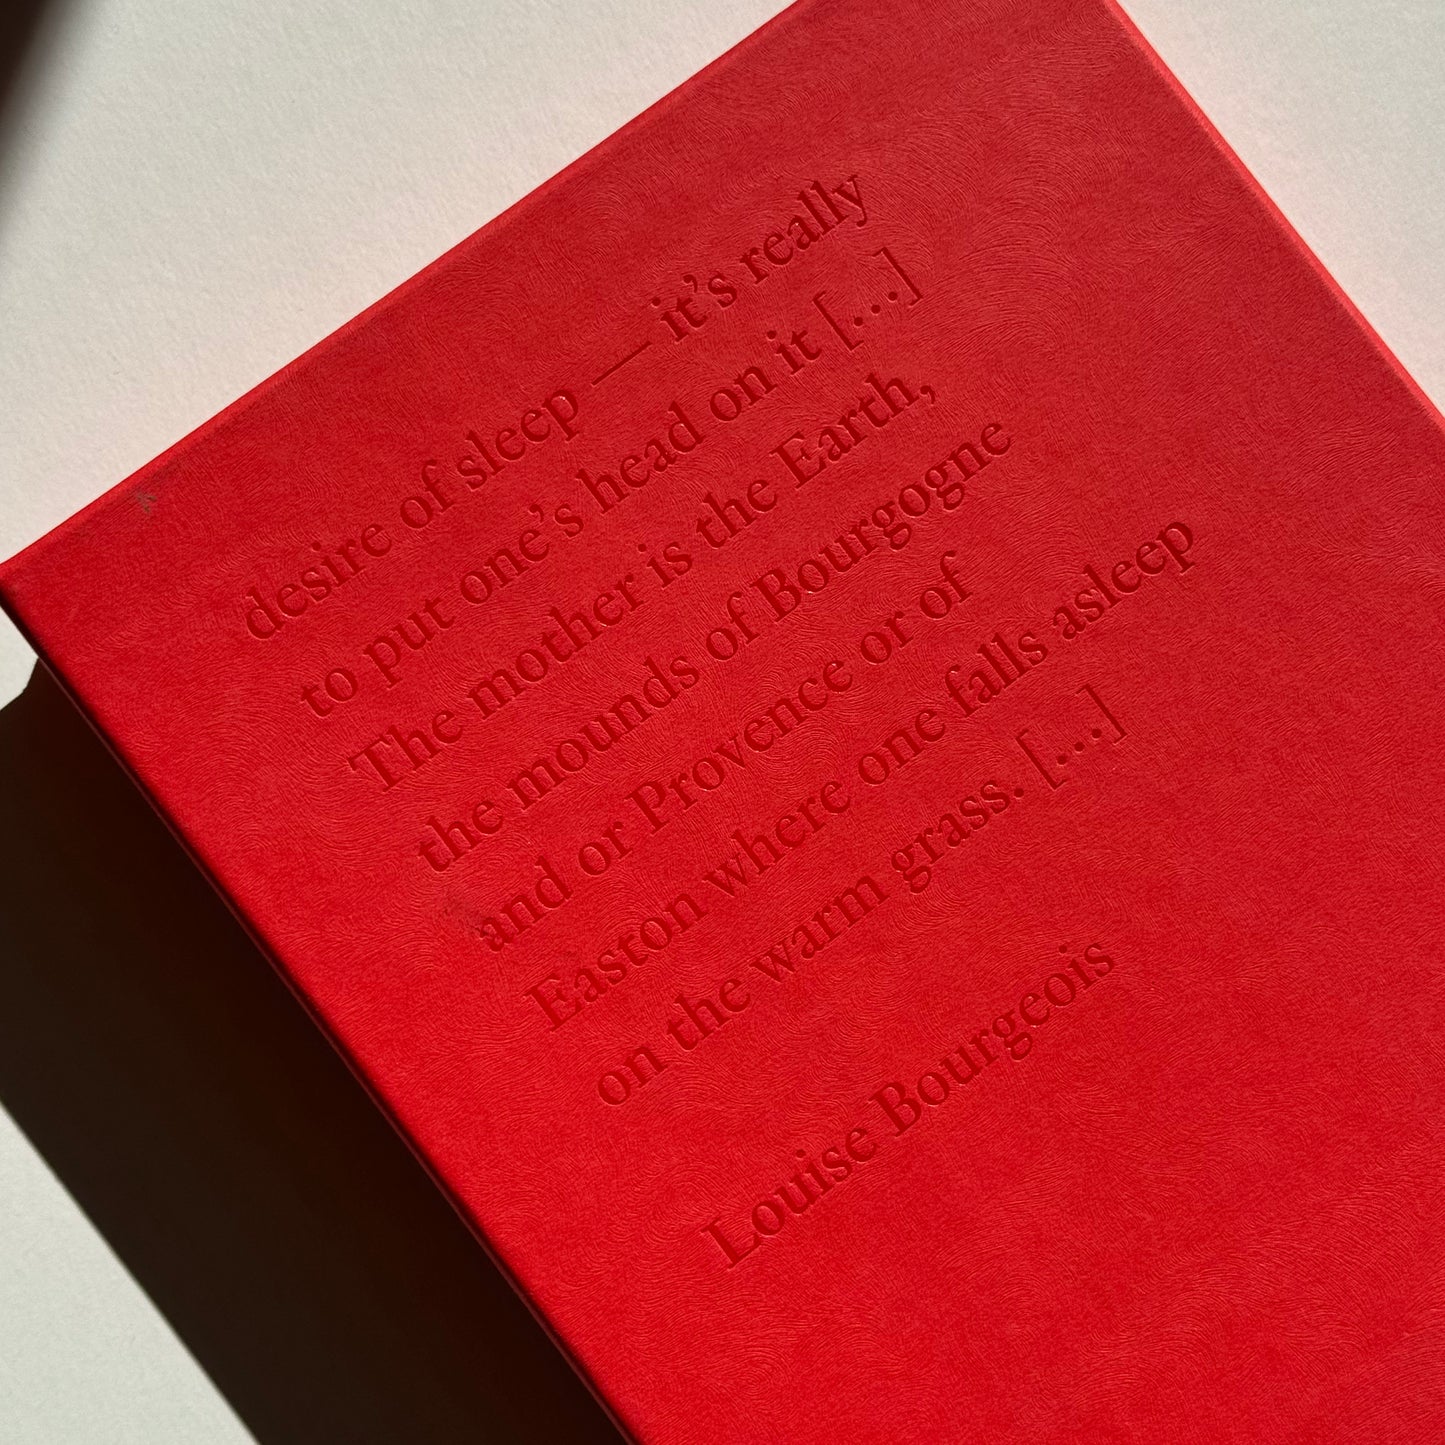 desire of sleep — it’s really
to put one’s head on it [...]
The mother is the Earth,
the mounds of Bourgogne
and or Provence or of
Easton where one falls asleep
on the warm grass. [...]
Louise Bourgeois